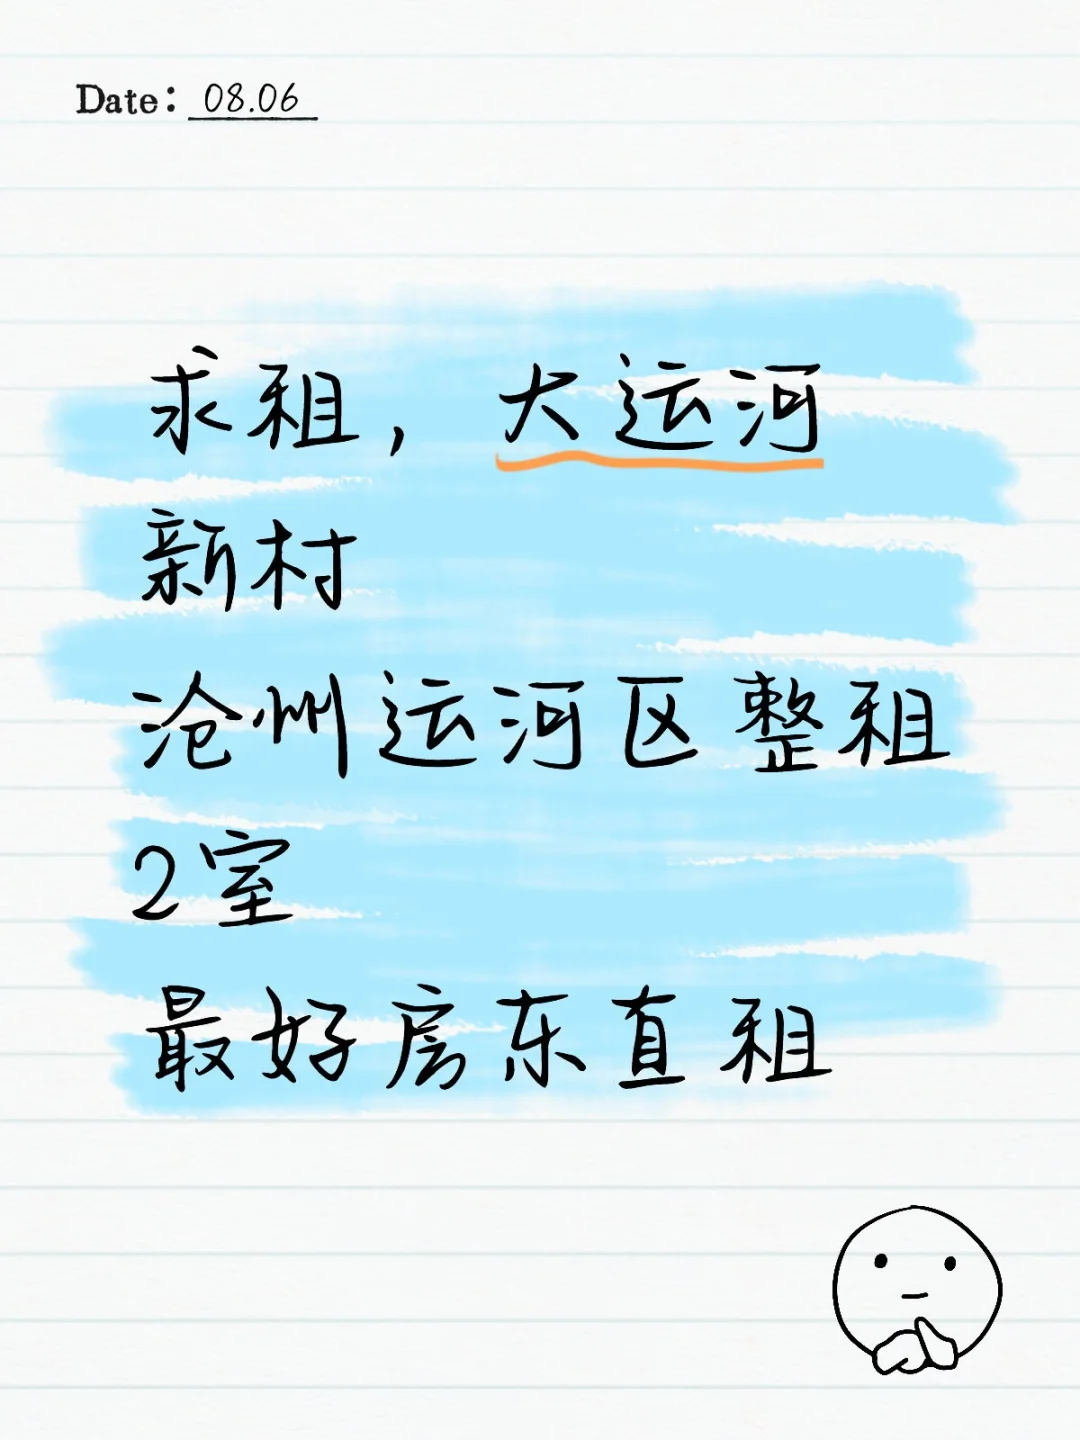 Date: 08.06
求租，大运河
新村
沧州运河区整租
2室
最好房东直租